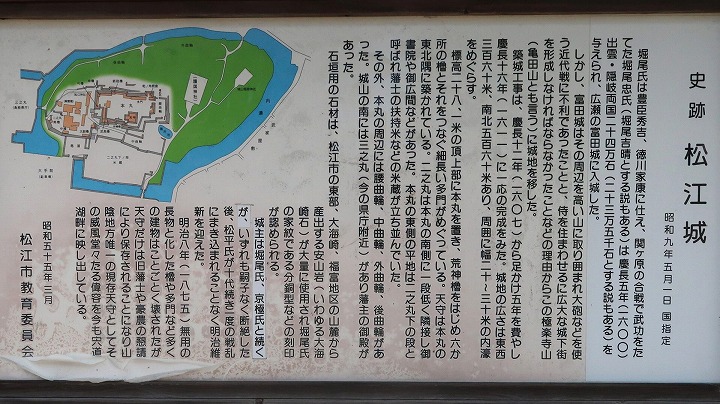 史跡 松江城
昭和九年五月一日 国指定
堀尾氏は豊臣秀吉、徳川家康に仕え、関ヶ原の合戦で武功をた
てた堀尾忠氏（堀尾吉晴とする説もある）は慶長五年（一六〇〇）
出雲・隠岐両国二十四万石（二十三万五千石とする説もある）を
与えられ、広瀬の富田城に入城した。
しかし、富田城はその周辺を高い山に取り囲まれ大砲などを使
う近代戦に不利であったことと、侍を住まわせるに広大な城下街
を形成しなければならなかったことなどの理由からこの極楽寺山
（亀田山とも言う）に城地を移した。
築城工事は、慶長十二年（一六〇七）から足かけ五年を費やし
慶長十六年（一六一一）に一応の完成をみた。城地の広さは東西
三百六十米、南北五百六十米あり、周囲に幅二十～三十米の内濠
をめぐらす。
標高二十八、一米の頂上部に本丸を置き、荒神櫓をはじめ六か
所の櫓とそれをつなぐ細長い多門がめぐっている。天守は本丸の
東北隅に築かれている。二之丸は本丸の南側に一段低く隣接し御
書院や御広間などがあった。本丸の東側の平地は二之丸下の段と
呼ばれ藩士の扶持米などの米蔵が立ち並んでいた。
その外、本丸の周辺には腰曲輪、中曲輪、外曲輪、後曲輪があ
った。城山の南には三之丸（今の県庁附近）があり藩主の御殿が
あった。
石垣用の石材は、松江市の東部、大海崎、福富地区の山麓から
産出する安山岩（いわゆる大海
崎石）が大量に使用され堀尾氏
の家紋である分銅型などの刻印
が認められる。
城主は堀尾氏、京極氏と続く
が、いずれも嗣子なく断絶した
後、松平氏が十代続き一度の戦乱
にまき込まれることなく明治維
新を迎えた。
明治八年（一八七五）無用の
長物と化した櫓や多門など多く
の建物はことごとく壊されたが
天守だけは旧藩士や豪農の懇請
により保存されることになり山
陰地方唯一の現存天守としてそ
の威風堂々たる偉容を今も宍道
湖畔に映し出している。
昭和五十五年三月
松江市教育委員会
本丸
内濠